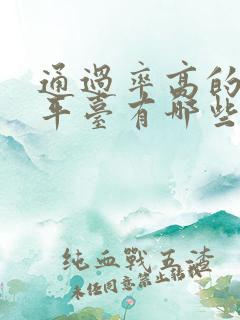 通過率高的
平臺有哪些
純血戰五渣
未經同意禁止轉載